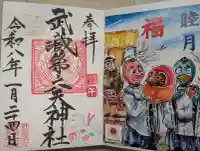 奉拝
武蔵第六天神社
令和八年一月二十四日
睦月
福